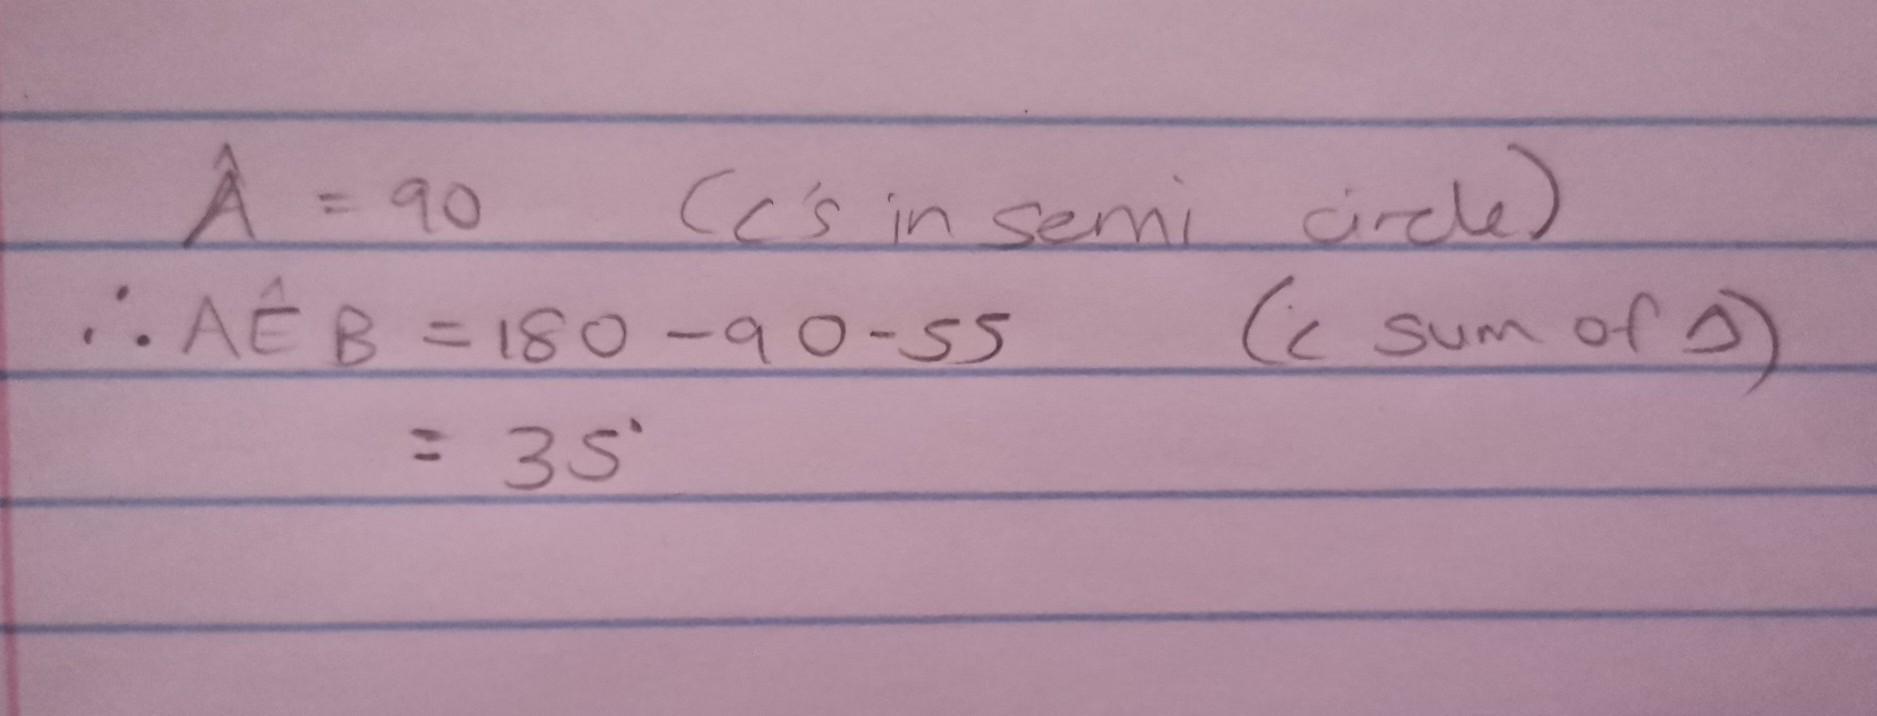 Â = 90 (<'s in semi circle)
∴ AÊB = 180 - 90 - 55 (< sum of Δ)
= 35°